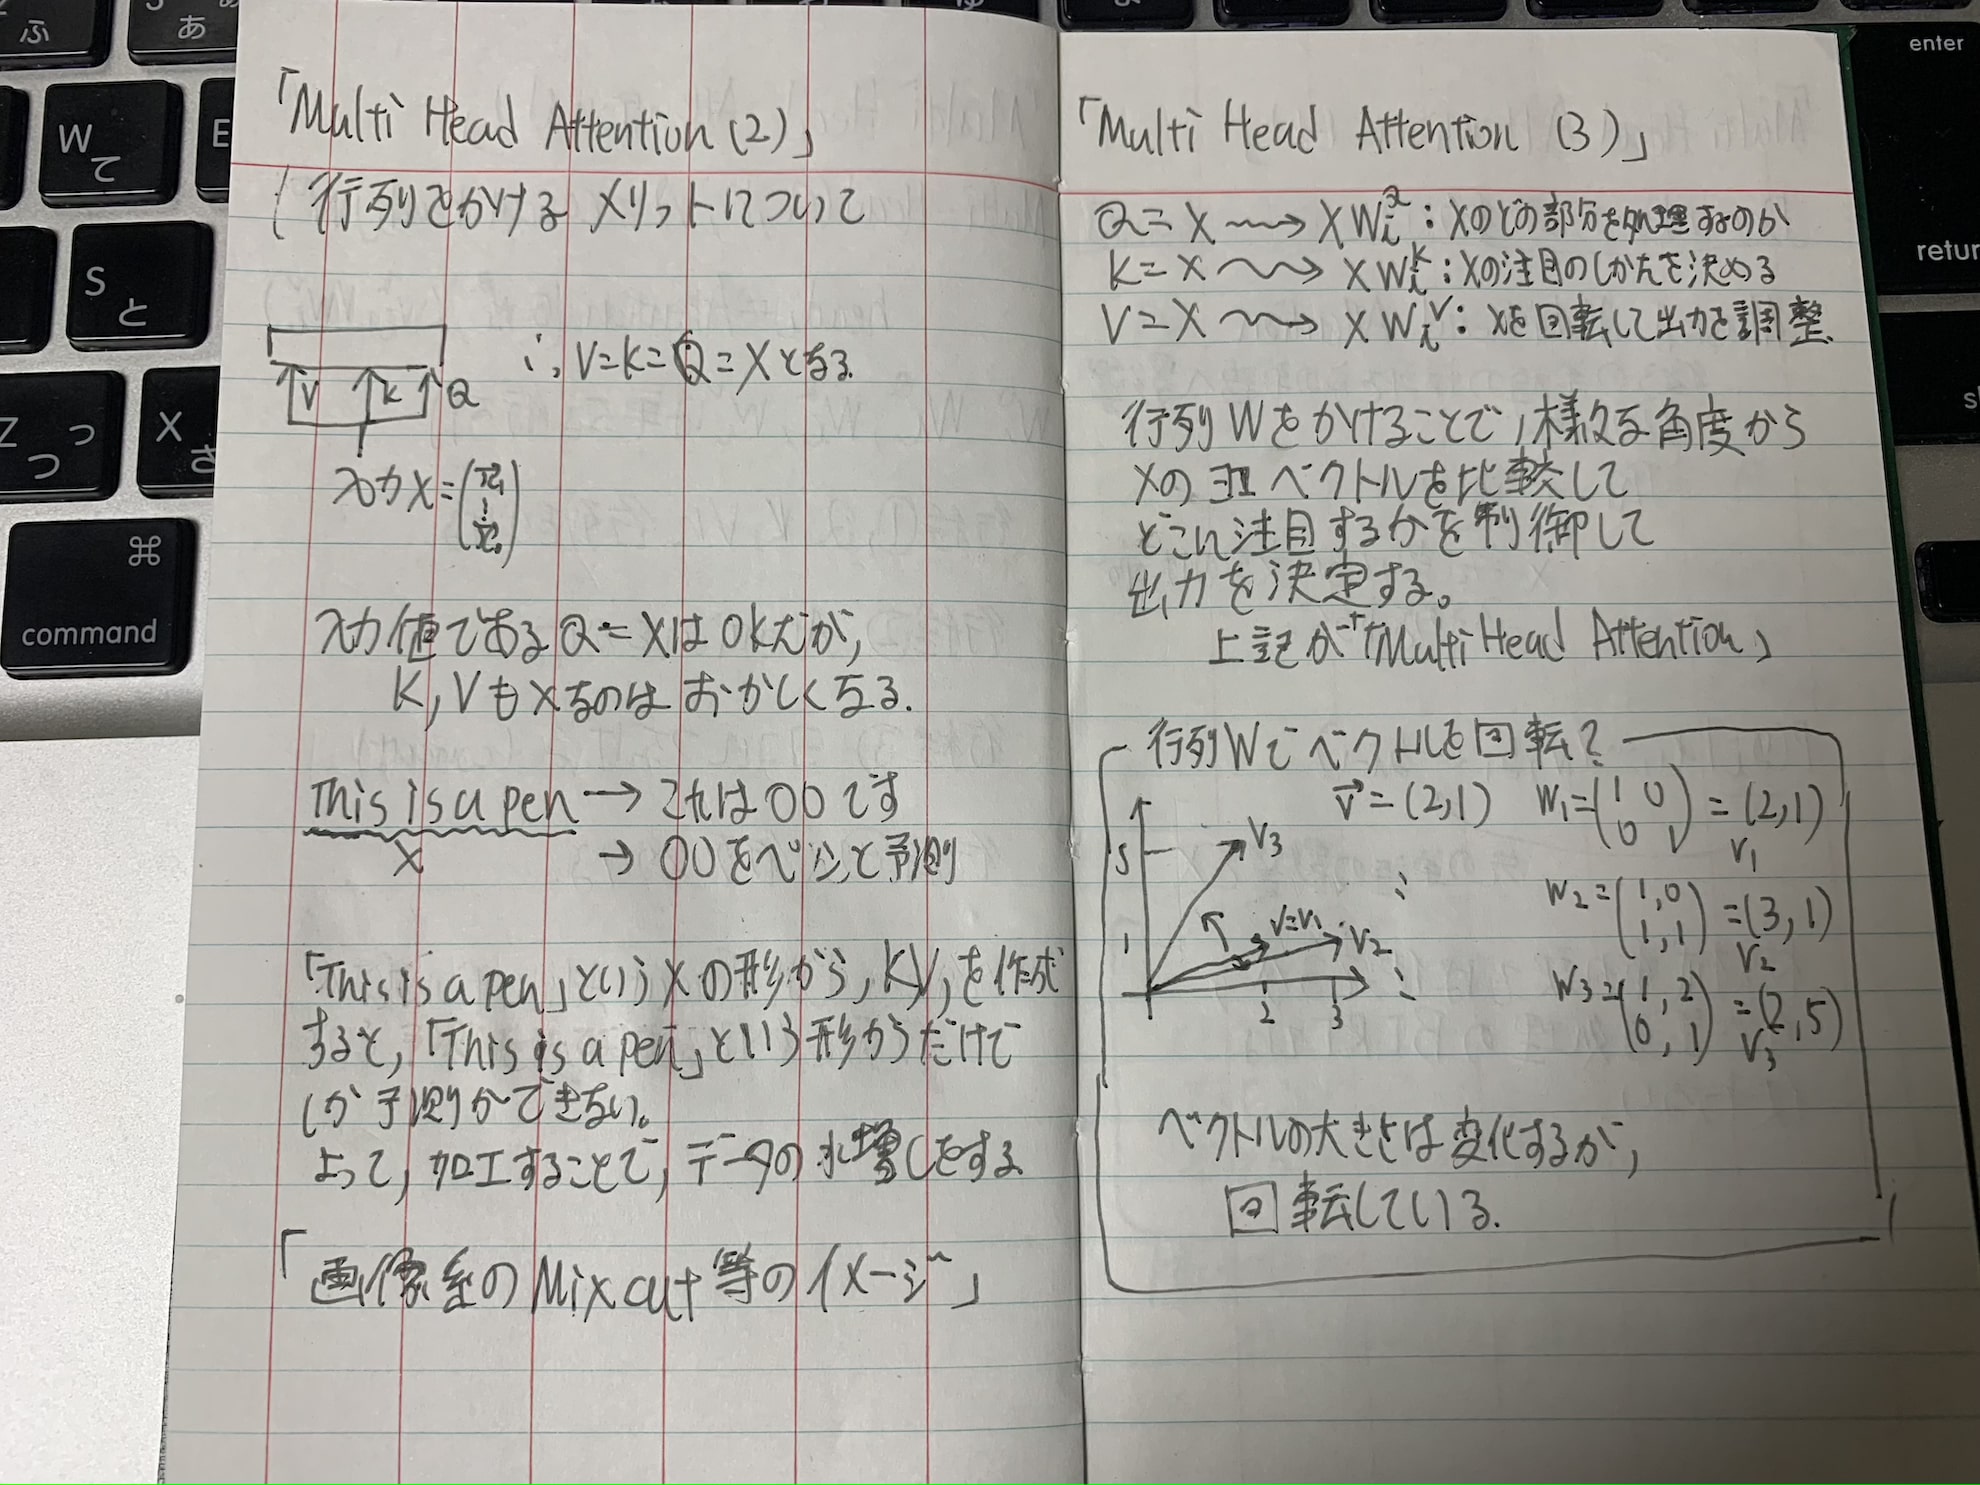 「Multi Head Attention (2)」
行列をかけるメリットについて
V K Q
∴ V=K=Q=Xとなる.
入力X=
入力値であるQ=XはOKだが,
K,VもXなのはおかしくなる.
This is a pen → これは〇〇です
X
→ 〇〇をペンと予測
「This is a pen」というXの形から,KV,を作成
すると,「This is a pen」という形からだけで
しか予測ができない。
よって,加工することで,データの水増しをする.
「画像系のMixcut等のイメージ」
「Multi Head Attention (3)」
Q=X → XWiQ : Xのどの部分を処理するのか
K=X → XWiK : Xの注目のしかたを決める
V=X → XWiV : Xを回転して出力を調整.
行列Wをかけることで,様々な角度から
Xの ベクトルを比較して
どこに注目するかを制御して
出力を決定する。
上記が「Multi Head Attention」
行列Wでベクトルを回転?
v=(2,1) W1=(1 0
0 1) =(2,1)
V1
5
V3
W2=(1,0
1,1) =(3,1)
V2
1
V=V1
V2
W3=(1,2
0,1) =(2,5)
V3
2 3
ベクトルの大きさは変化するが,
回転している.
W
て
E
S
と
Z
つ
っ
X
さ
⌘
command
ふ
あ
enter